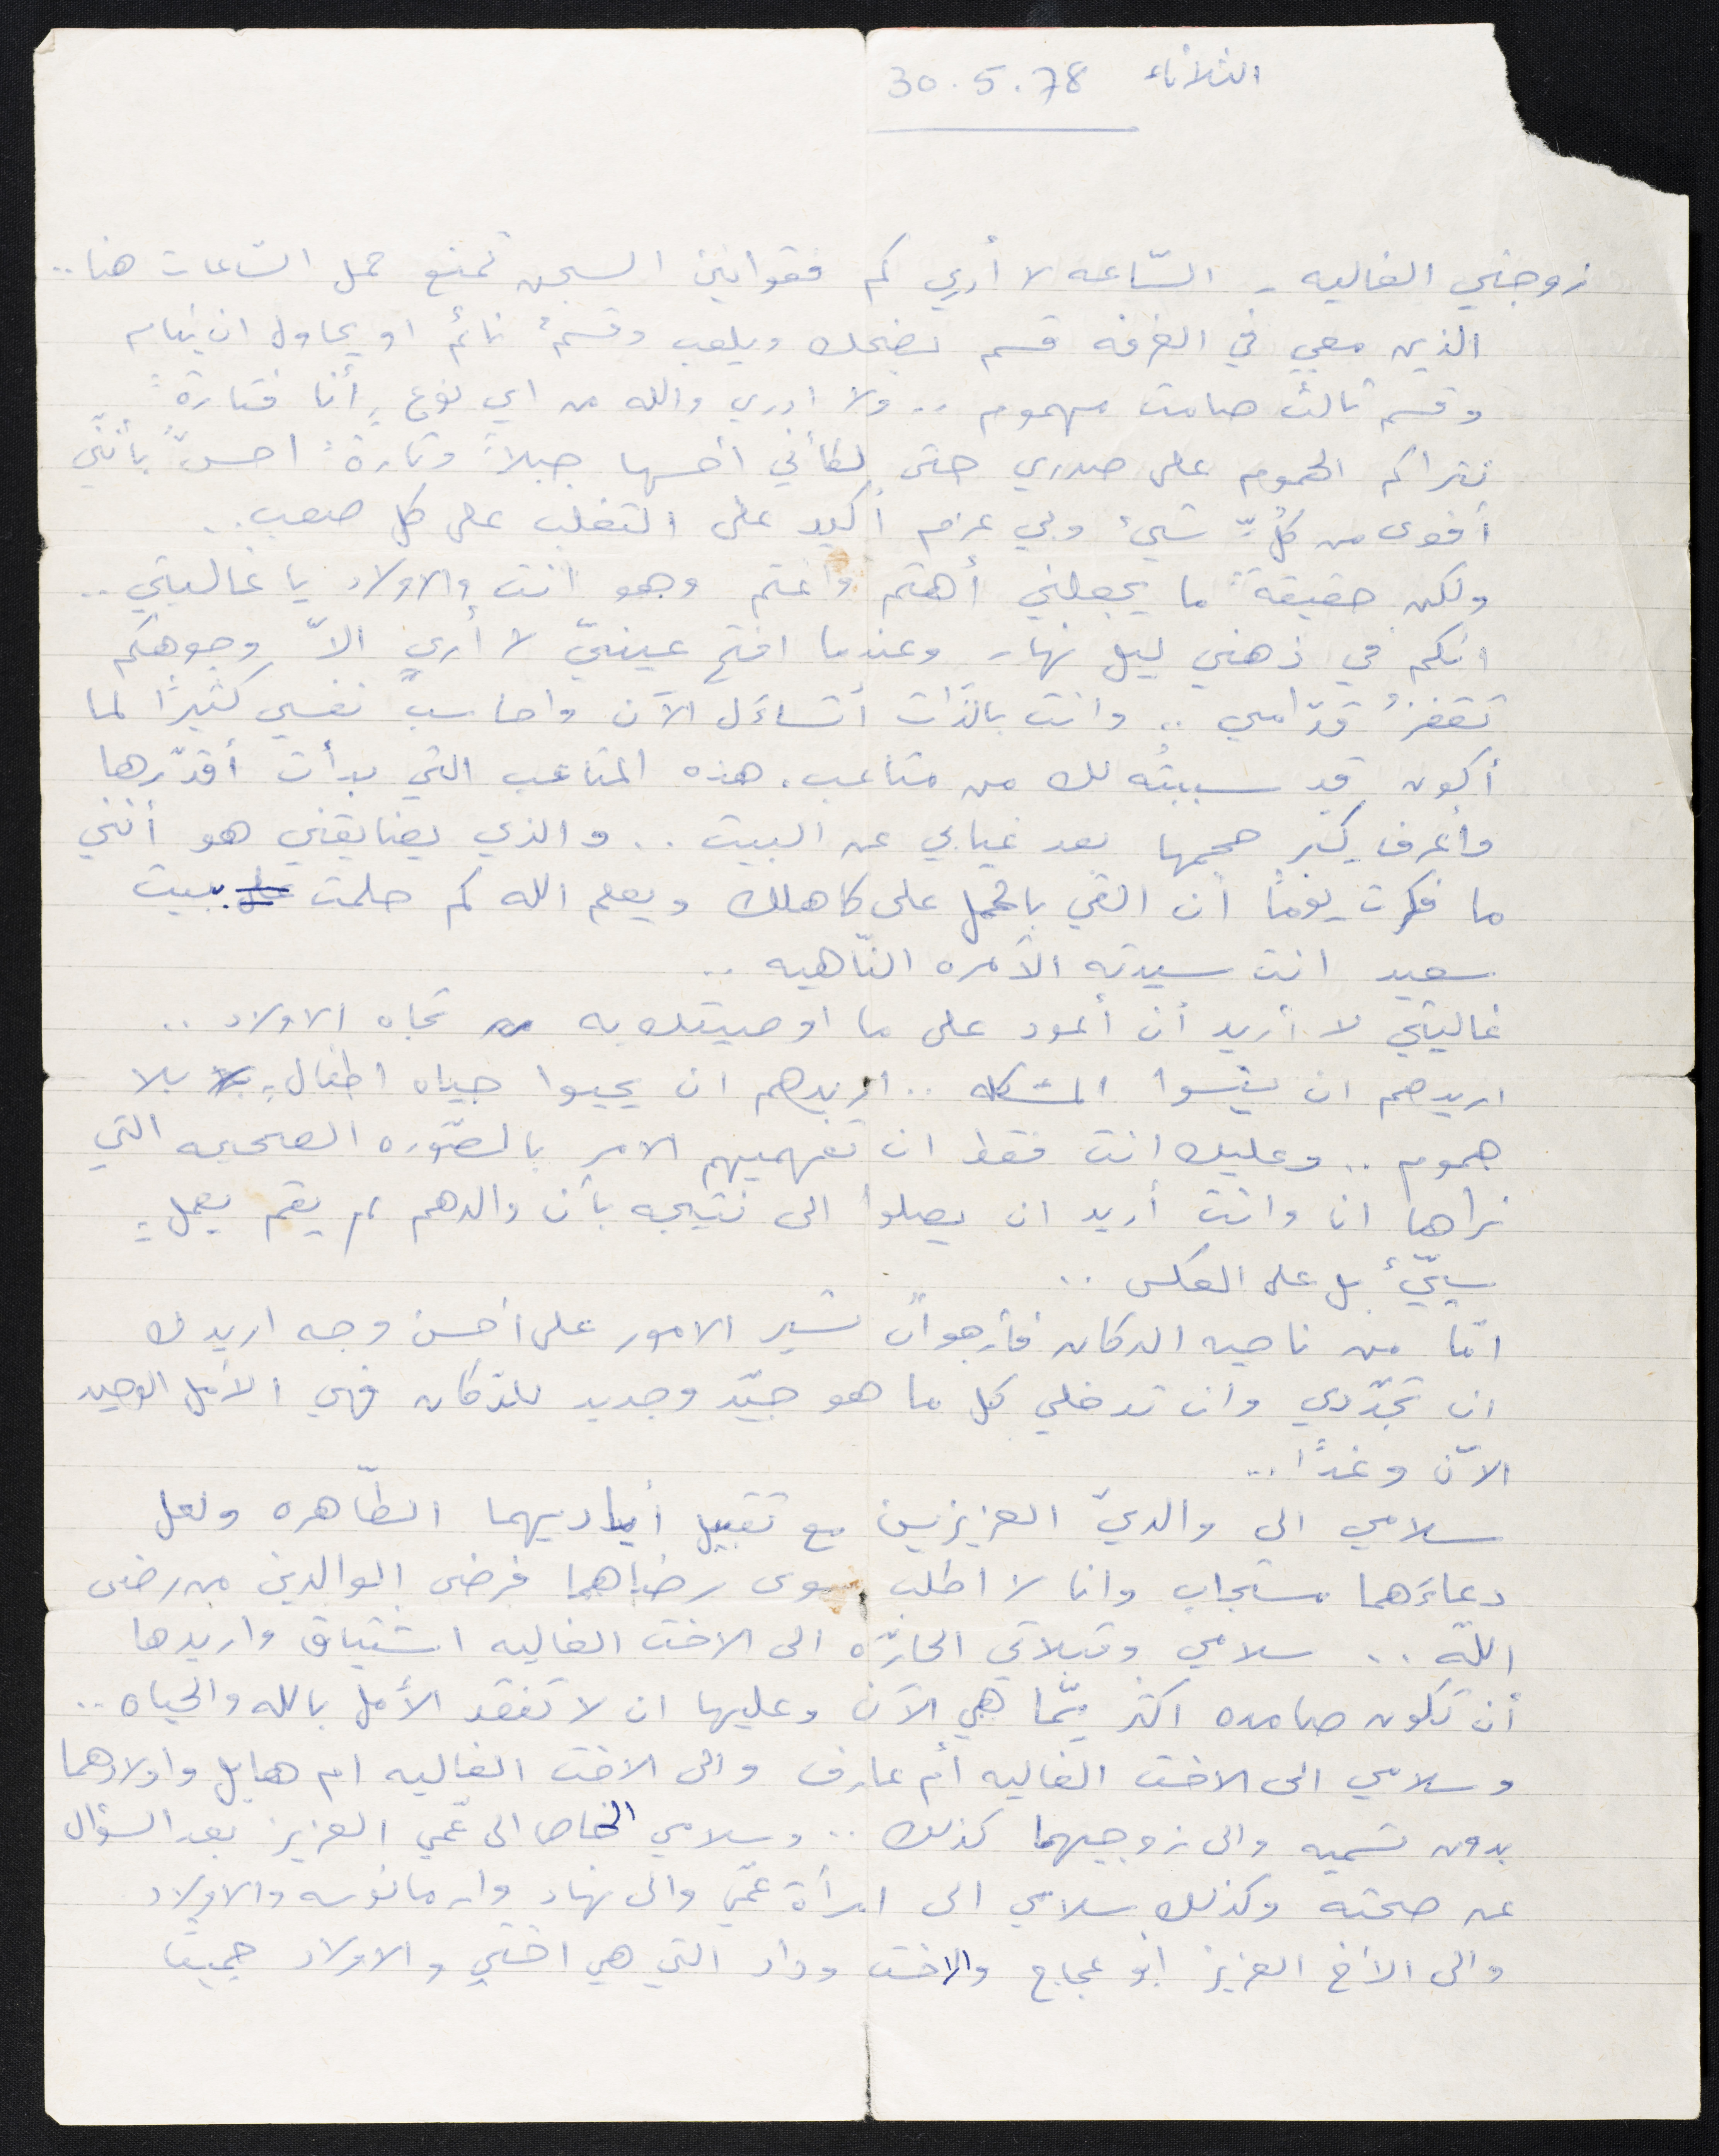 الثلاثاء 30.5.78
زوجتي الغاليه - السّاعه لا أدري كم فقوانين السجن تمنع حمل السّاعات هنا..
الذين معي في الغرفه قسم يضحك ويلعب وقسمٌ نائم او يحاول ان ينام
وقسم ثالث صامت مهموم .. ولا ادري والله من اي نوعٍ أنا فتارةً
تتراكم الهموم على صدري حتى لكأني أحسها جبلاً وتارةً احسّ بأنّني
أقوى من كلِّ شيء ولي عزم أكيد على التغلب على كل صعب..
ولكن حقيقةً ما يجعلني أهتم وأغتم وهو أنت والاولاد يا غاليتي..
انكم في ذهني ليل نهار وعندما افتح عينيّ لا أرى الاّ وجوهكم
تقفزُ قدّامي .. وانت بالذّات أتساءل الآن واحاسبُ نفسي كثيرًا لما
أكون قد سببتُه لك من متاعب. هذه المتاعب التي بدأت أقدّرها
وأعرف كبر حجمها بعد غيابي عن البيت .. والذي يضايقني هو أنّني
ما فكرت يومًا أن القي بالحمل على كاهلك ويعلم الله كم حلمت ببيت
سعيد انت سيدته الآمره النّاهيه ..
غاليتي لا أريد أن أعود على ما اوصيتك به تجاه الاولاد ..
اريدهم ان ينسوا المشكله .. اريدهم ان يحيوا حياه اطفالٍ بلا
هموم .. وعليك انت فقط ان تفهميهم الامر بالصّوره الصحيحه التي
نراها انا وانت أريد ان يصلوا الى نتيجه بأن والدهم لم يقم بعملٍ
سيّيء بل على العكس ..
امّا من ناحيه الدكان فأرجو أن تسير الامور على أحسن وجه اريدك
ان تجدّدي وان تدخلي كل ما هو جيّد وجديد للدّكان فهي الأمل الوحيد
الآن وغدًا ..
سلامي الى والديّ العزيزين مع تقبيل أياديهما الطّاهره ولعل
دعاءَهما مستجاب وانا لا اطلب سوى رضاهما فرضى الوالدين من رضى
اللّه .. سلامي وقبلاتي الحارّه الى الاخت الغاليه اشتياق واريدها
أن تكون صامده اكثر ممّا هي الآن وعليها ان لا تفقد الأمل بالله والحياه ..
وسلامي الى الاخت الغاليه أم عارف والى الاخت الغاليه ام هايل واولادهما
بدون تسميه والى زوجيهما كذلك .. وسلامي الخاص الى عمّي العزيز بعد السؤال
عن صحته وكذلك سلامي الى امرأة عمّي والى نهاد وام مانوسه والاولاد
والى الأخ العزيز ابو عجاج والاخت وداد التي هي اختي والاولاد جميعًا